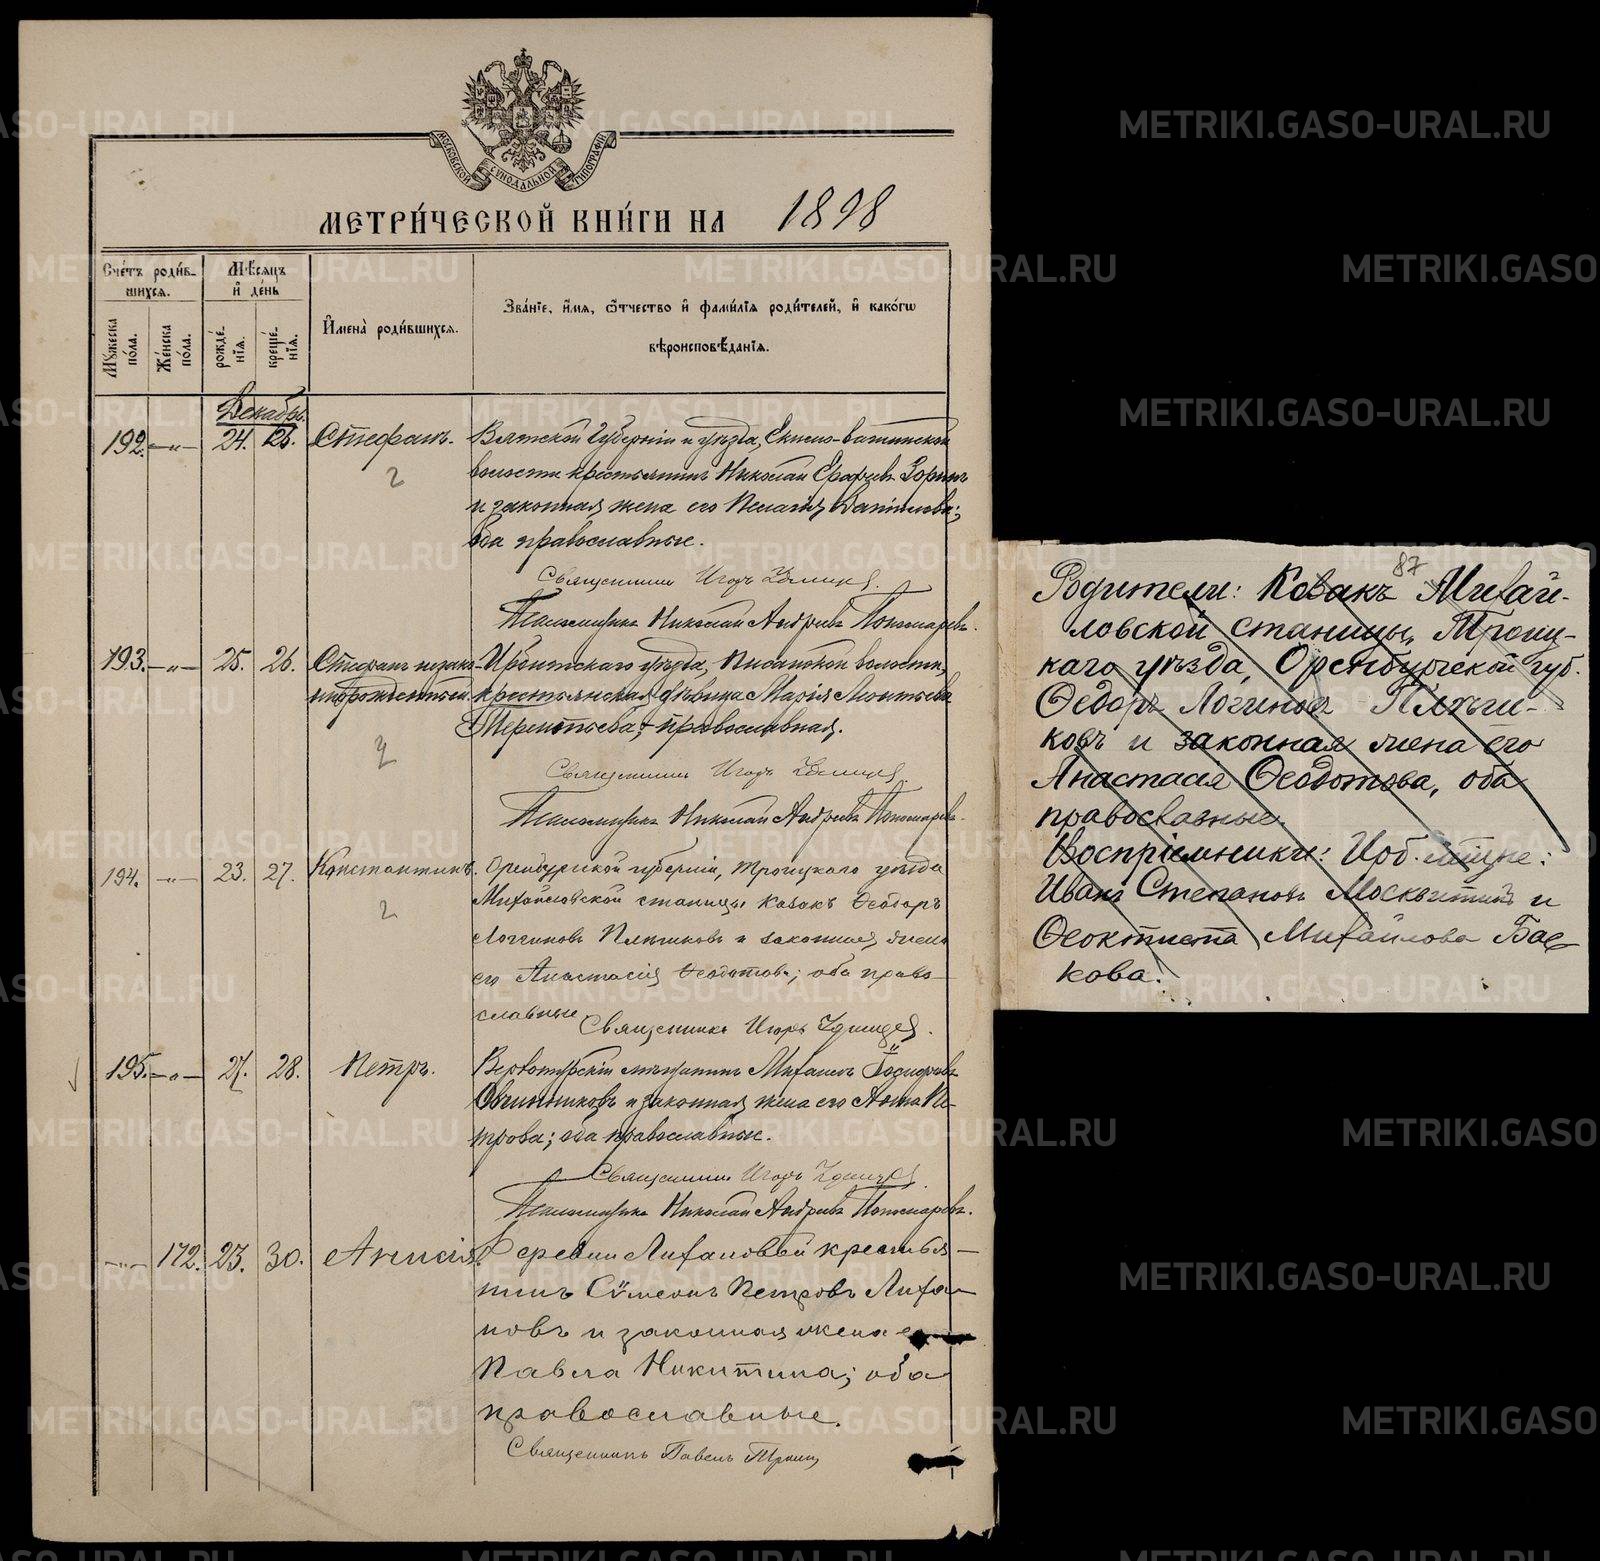 МОСКОВСКОЙ СУНОДАЛЬНОЙ ТИПОГРАФІИ
МЕТРИ́ЧЕСКОЙ КНИ́ГИ НА 1898
Сче́тъ роди́в-
шихсѧ.
Мꙋ́жеска по́ла.
Же́нска по́ла.
Мѣ́сѧцъ
и҆ де́нь
рожде́-
нїѧ.
креще́-
нїѧ.
И҆мена̀ роди́вшихсѧ.
Зва́нїе, и҆́мѧ, ѻ҆́тчество и҆ фами́лїѧ роди́телей, и҆ како́гѡ
вѣроисповѣ́данїѧ.
Декабрь.
192. —„— 24. 25. Стефанъ. Вятской губерніи и уѣзда, волости крестьянинъ Николай Зоринъ
и законная жена его Пелагія Данилова;
оба православные.
Священникъ Игорь
Псаломщикъ Николай Андреевъ Пономаревъ.
193. —„— 25. 26. Стефанъ незакон- Ирбитскаго уѣзда, волости,
норожденный крестьянская дѣвица Марія Леонтьева
Терентьева, православная.
Священникъ Игорь
Псаломщикъ Николай Андреевъ Пономаревъ.
194. —„— 23. 27. Константинъ. Оренбургской губерніи, Троицкаго уѣзда
Михайловской станицы казакъ Ѳеодоръ
Логгиновъ Плѣшиковъ и законная жена
его Анастасія Ѳеодотова; оба право-
славные
Священникъ Игорь
195. —„— 27. 28. Петръ. Верхотурскій мѣщанинъ Михаилъ
Овчинниковъ и законная жена его Анна Пе-
трова; оба православные.
Священникъ Игорь
Псаломщикъ Николай Андреевъ Пономаревъ.
—„— 172. 23. 30. Анисія. Деревни Лихановой крестья-
нинъ Сѵмеонъ Петровъ Лиха-
новъ и законная жена его
Павла Никитина; оба
православные.
Священникъ Павелъ
87
Родители: Козакъ Михай-
ловской станицы, Троиц-
каго уѣзда, Оренбургской губ.
Ѳедоръ Логгиновъ Плѣши-
ковъ и законная жена его
Анастасія Ѳеодотова, оба
православные.
Воспріемники:
Иванъ Степановъ Москвитинъ и
Ѳеоктиста Михайлова Бас-
кова.
METRIKI.GASO-URAL.RU